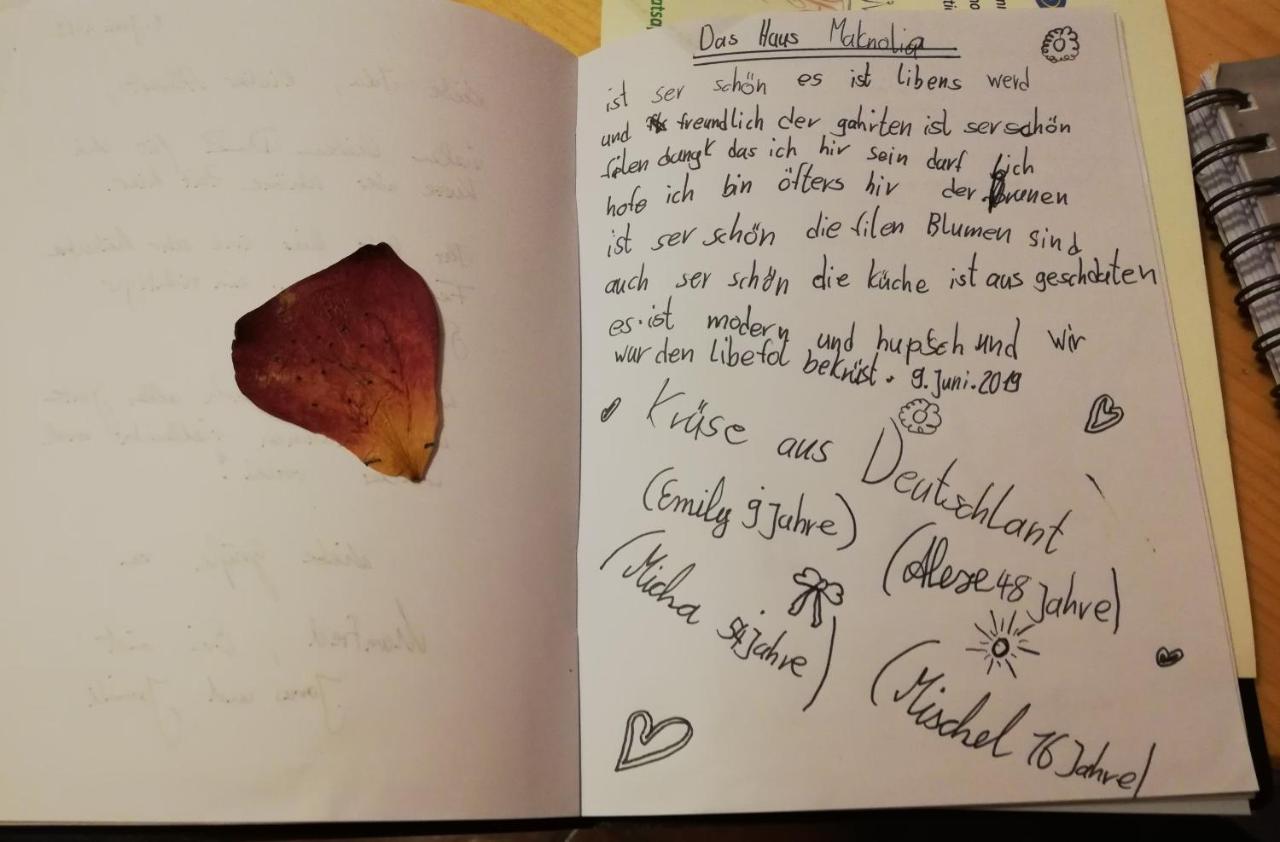 Das Haus Maknolia
ist ser schön es ist libens werd
und freundlich der gahrten ist ser schön
filen dangk das ich hir sein darf ich
hofe ich bin öfters hir der brunen
ist ser schön die filen Blumen sind
auch ser schön die küche ist aus geschdaten
es ist modern und hupsch und wir
wurden libefol bekrüst. 9. Juni. 2019
Krüse aus Deutschlant
(Emily 9 Jahre)
48 Jahre)
(Micha 54 Jahre)
(Mischel 16 Jahre)